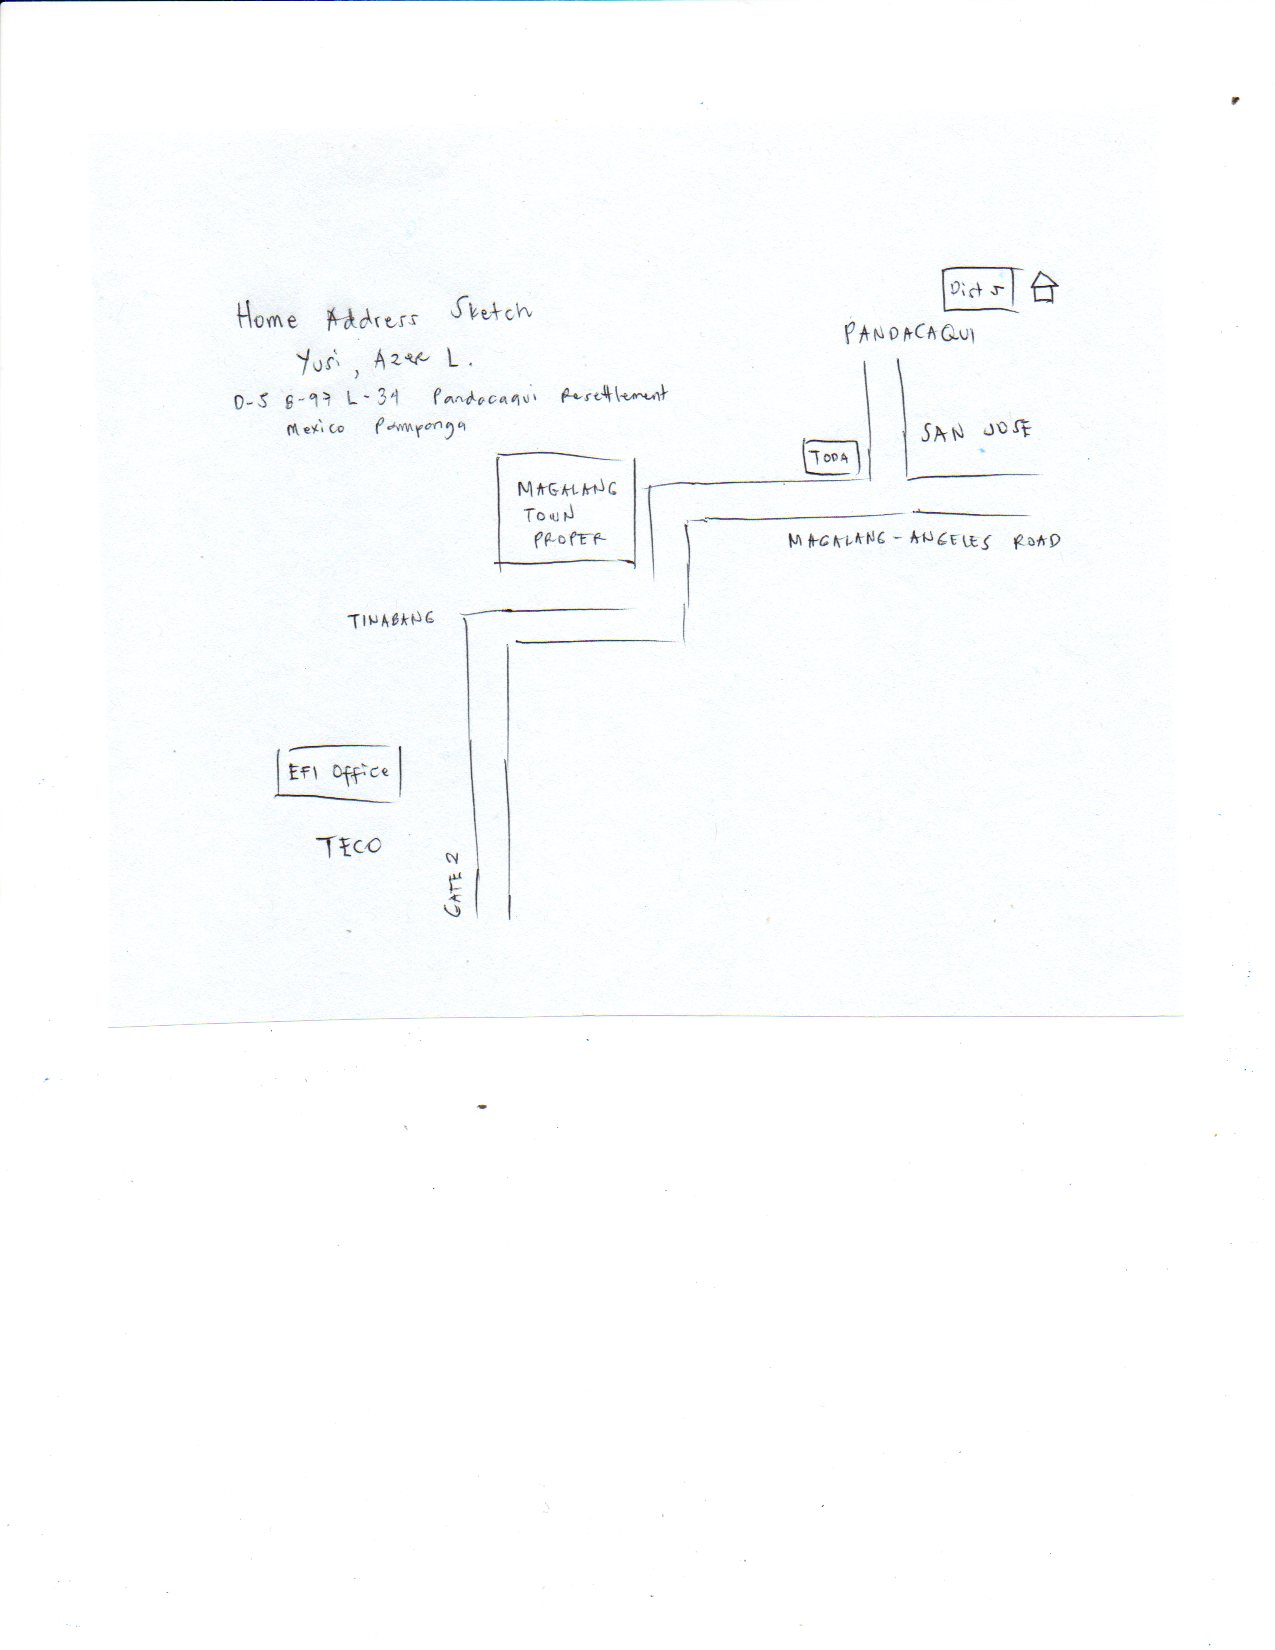 Home Address Sketch
Yusi, Azer L.
D-5 B-97 L-34 Pandacaqui Resettlement
Mexico Pampanga
Dist 5
PANDACAQUI
SAN JOSE
TODA
MAGALANG
TOWN
PROPER
MAGALANG-ANGELES ROAD
TINABANG
EFI Office
TECO
GATE 2